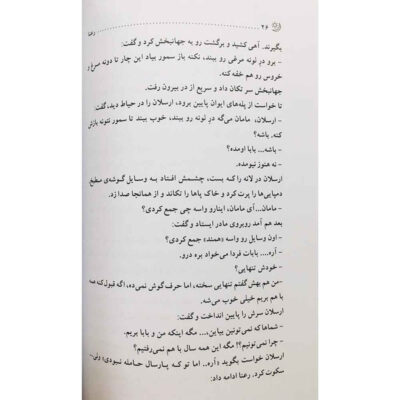 ۲۶ رعنا
بگیرند. آهی کشید و برگشت رو به جهانبخش کرد و گفت:
- برو در لونه مرغی رو ببند، نکنه باز سمور بیاد این چار تا دونه مرغ و
خروس رو هم خفه کنه.
جهانبخش سر تکان داد و سریع از در بیرون رفت.
تا خواست از پله‌های ایوان پایین برود، ارسلان را در حیاط دید، گفت:
- ارسلان، مامان می‌گه در لونه رو ببند، خوب ببند تا سمور نتونه بازش
کنه. باشه؟
- باشه... بابا اومده؟
- نه هنوز نیومده.
ارسلان در لانه را که بست، چشمش افتاد به وسایل گوشه‌ی مطبخ.
دمپایی‌ها را پرت کرد و خاک پاها را تکاند و از همانجا صدا زد.
- مامان... آی مامان، اینارو واسه چی جمع کردی؟
بعد هم آمد روبروی مادر ایستاد و گفت:
- اون وسایل رو واسه «همند» جمع کردی؟
- آره.... بابات فردا می‌خواد بره درو.
- خودش تنهایی؟
-من هم بهش گفتم تنهایی سخته، اما حرف گوش نمی‌ده، اگه قبول کنه همه
با هم بریم خیلی خوب می‌شه.
ارسلان سرش را پایین انداخت و گفت:
- شماها که نمی‌تونین بیاین،... مگه اینکه من و بابا بریم.
- چرا نمی‌تونیم؟! مگه این همه سال با هم نمی‌رفتیم؟
ارسلان خواست بگوید «آره.. اما تو که پارسال حامله نبودی» ولی
سکوت کرد. رعنا ادامه داد: